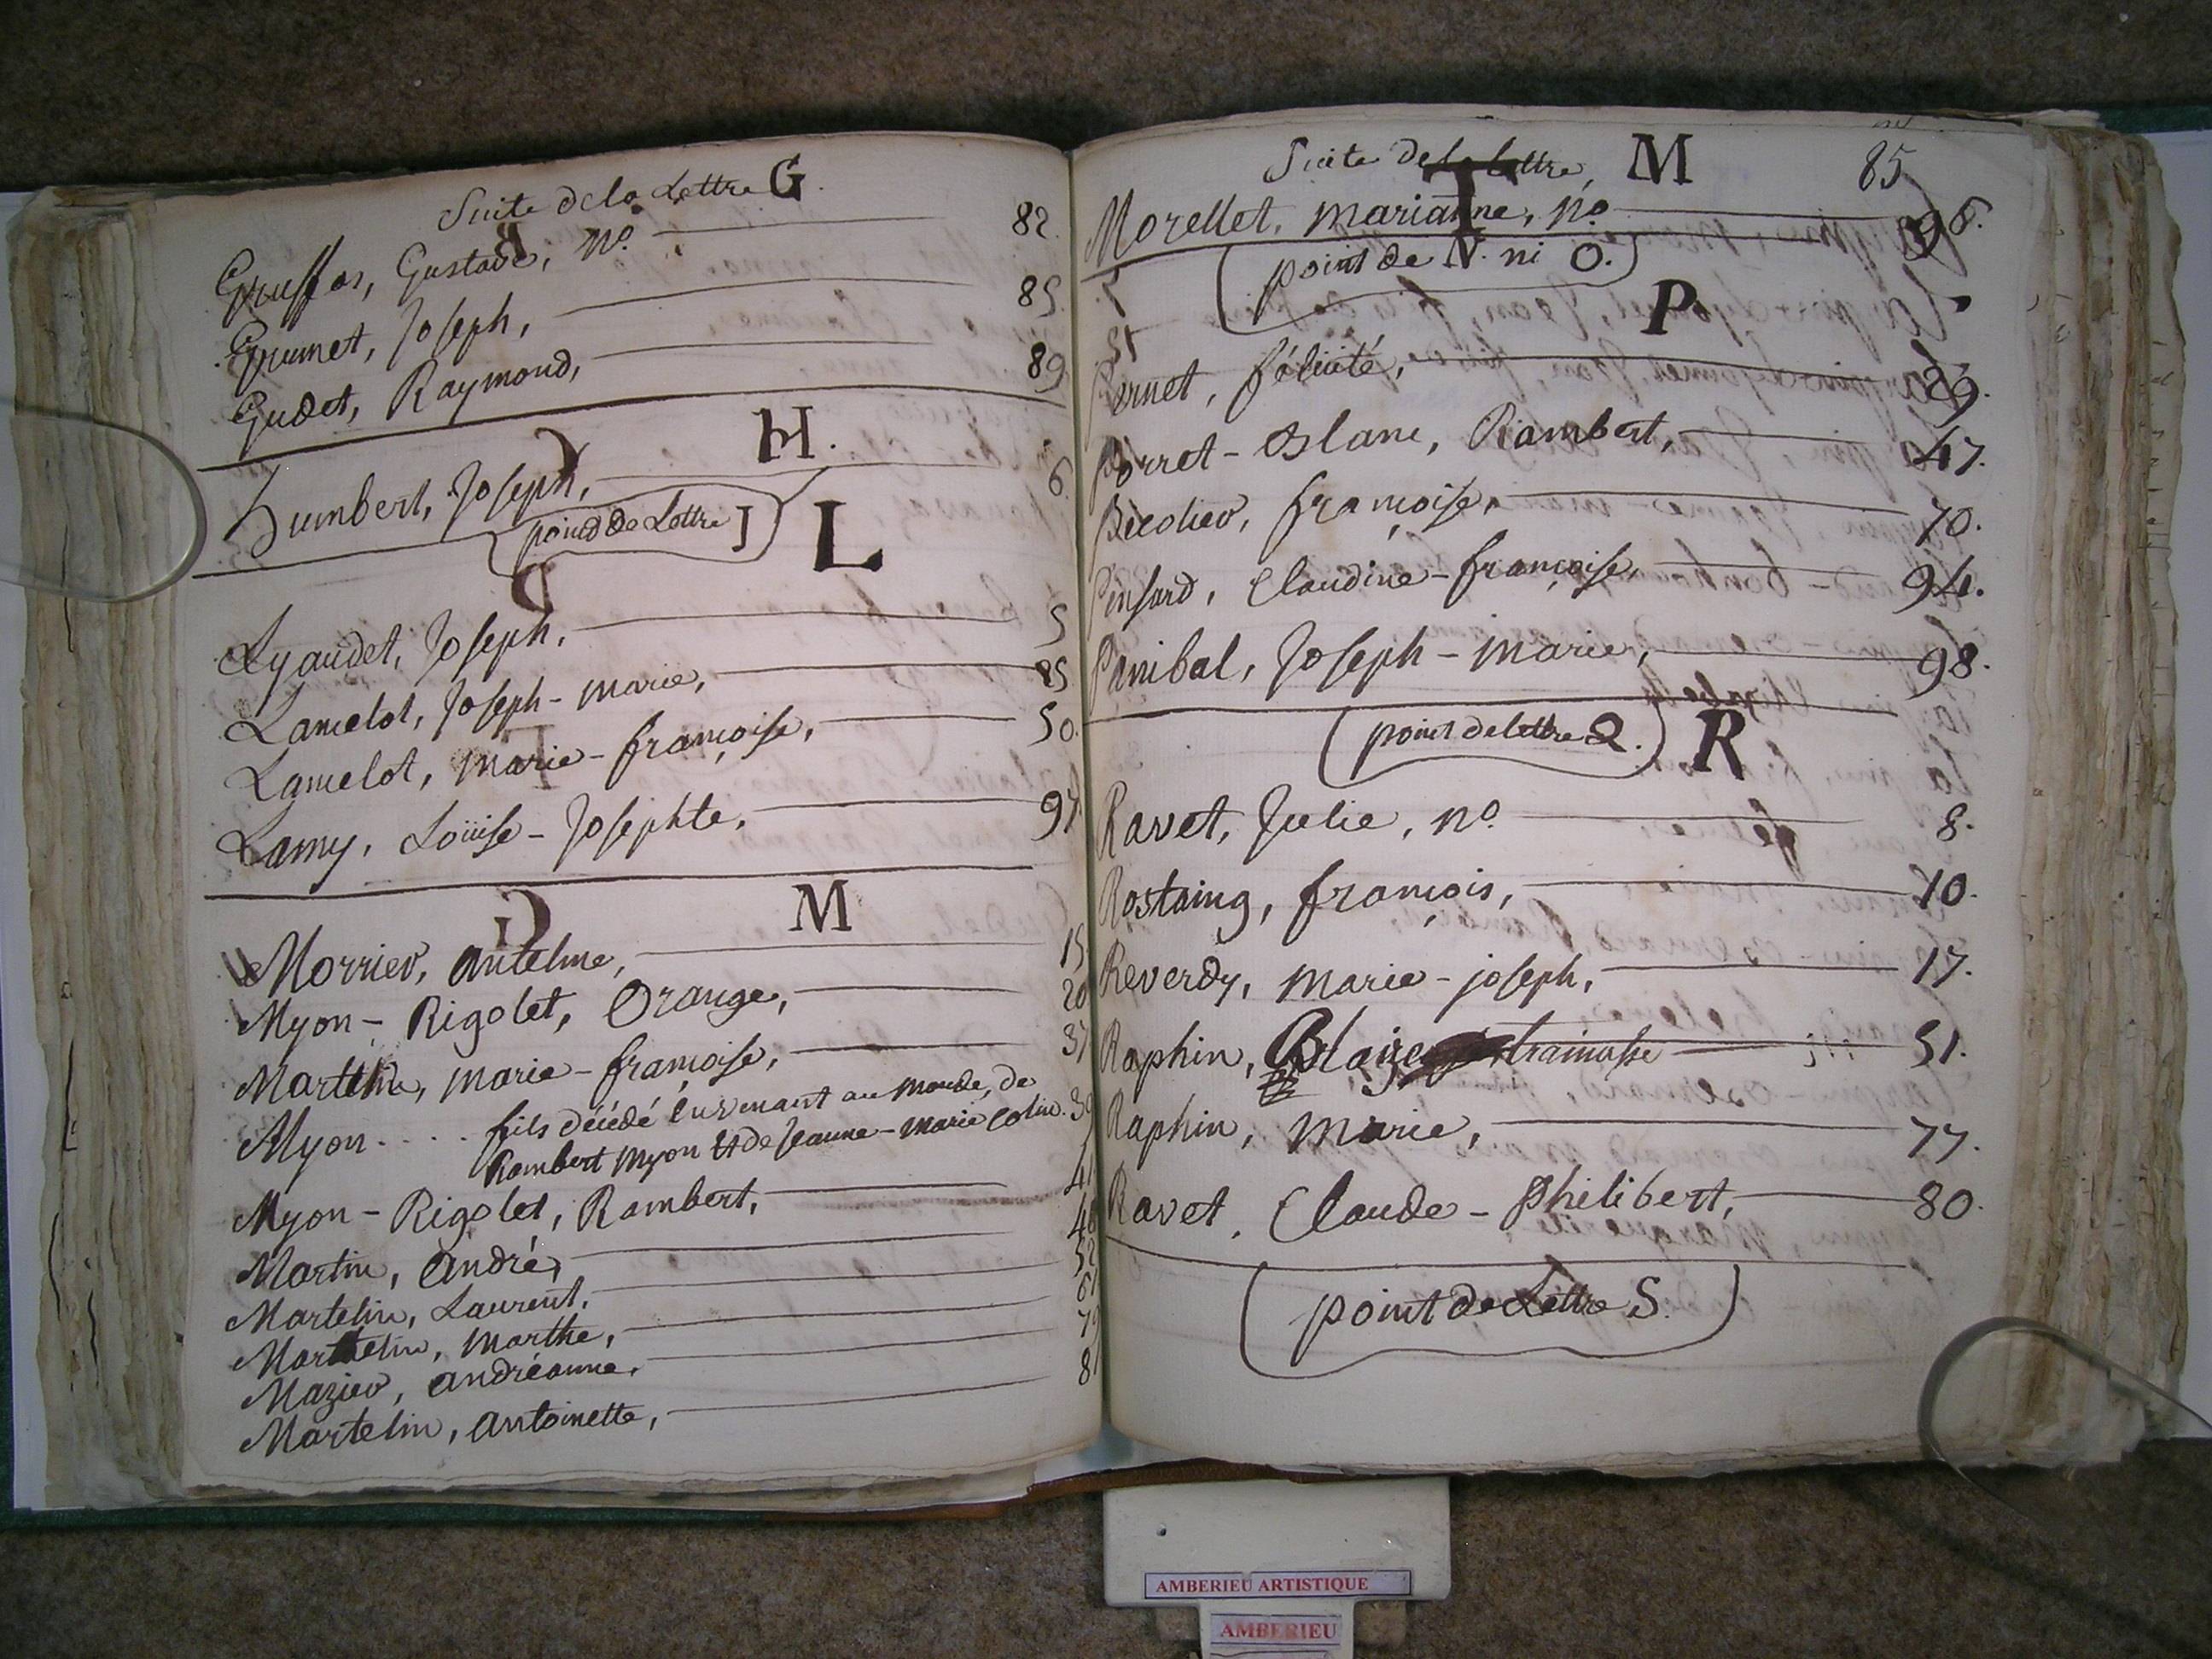 Suite de la Lettre G.
Gruffas, Gustave, no. 82.
Grumet, Joseph, 85.
Gudet, Raymond, 89
H.
humbert, Joseph, 6.
point de Lettre J
L
Lyaudet, Joseph, 5
Lamelot, Joseph-marie, 25
Lamelot, marie-françoise, 50.
Lamy, Loüise-Josephte, 97.
M
Morrier, antelme, 15
Myon-Rigolet, Orange, 20
Martelin, marie-françoise, 37
Myon .... fils décédé en venant au monde, de
Rambert myon et de Jeanne-marie Colin. 39
Myon-Rigolet, Rambert, 41
Martin, andré, 46
Martelin, Laurent, 52
Martelin, marthe, 61
Mazier, andréanne, 79
Martelin, antoinette, 81
Suite de la lettre, M
85
Morellet, marianne, no. 98.
(point de N. ni O.)
P.
Pernet, félicité, 29.
Porret-Blanc, Rambert, 47.
françoise, 70.
Pinsard, Claudine-françoise, 94.
Panibal, Joseph-marie, 98.
(point de lettre Q.)
R
Ravet, Julie, no. 8.
Rostaing, françois, 10.
Reverdy, marie-joseph, 17.
Raphin, Blaise 51.
Raphin, marie, 77.
Ravet, Claude-philibert, 80.
(point de Lettre S.)
AMBERIEU ARTISTIQUE
AMBERIEU